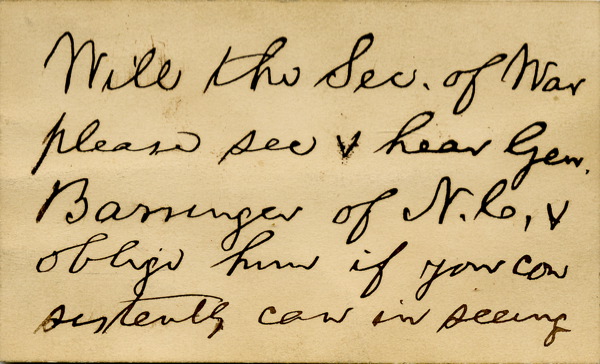 Will the Sec. of War
please see & hear Gen.
Barringer of N.C., &
oblige him if you con
sistently can in seeing